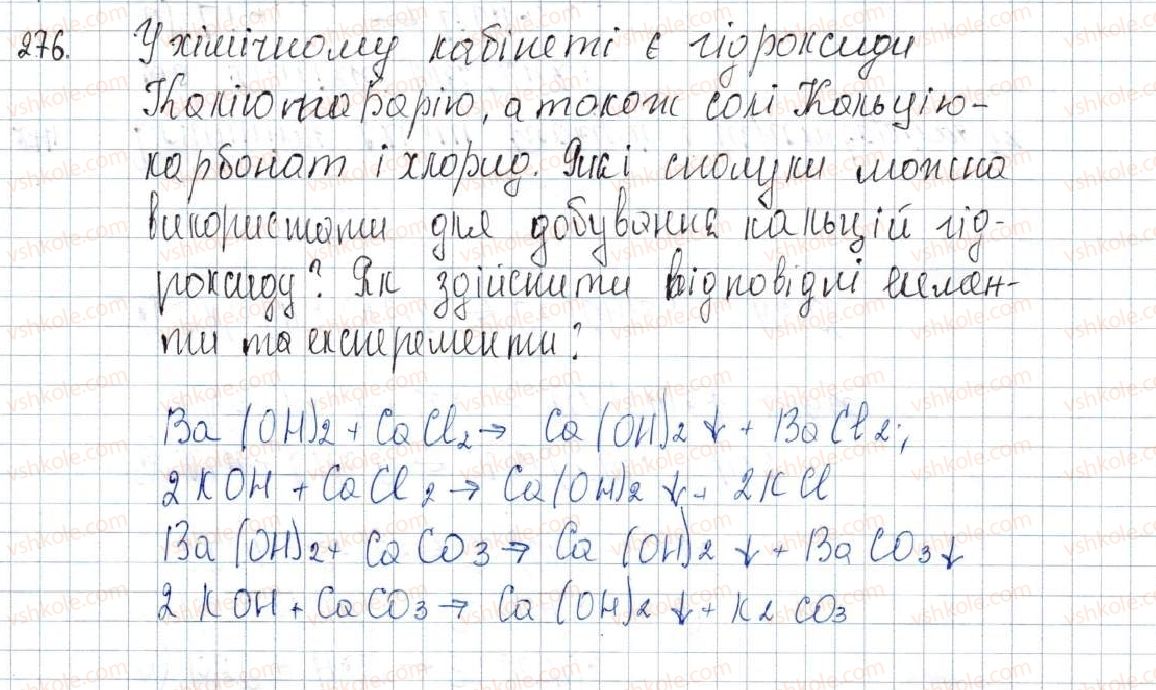 276. У хімічному кабінеті є гідроксиди
Калію та Барію, а також солі Кальцію-
карбонат і хлорид. Які сполуки можна
використати для добування кальцій гід-
роксиду? Як здійснити відповідні
ти та експеременти?
Ba(OH)2 + CaCl2 → Ca(OH)2 ↓ + BaCl2;
2KOH + CaCl2 → Ca(OH)2 ↓ + 2KCl
Ba(OH)2 + CaCO3 → Ca(OH)2 ↓ + BaCO3 ↓
2KOH + CaCO3 → Ca(OH)2 ↓ + K2CO3
vshkole.com